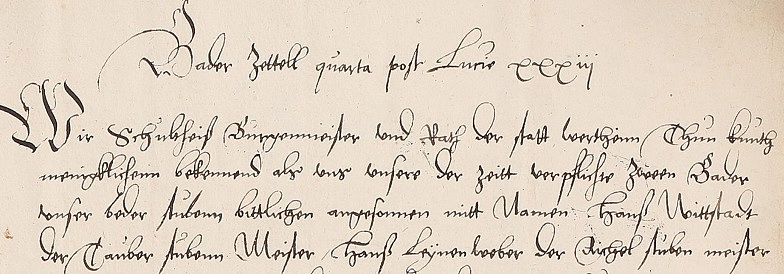 Bader Zettell quarta post Lucie xxxiii
Wir Schultheiß Burgenmeister vnd Rath der statt wertheim Thun kunth
menigklichenn bekennend als vns vnsere der Zeitt verpflichte Zween Bader
vnser beder stubenn bittlichen angesonnen mitt Namen Hanß Wittstadt
der Tauber stubenn Meister Hanß Leynenweber der stuben meister